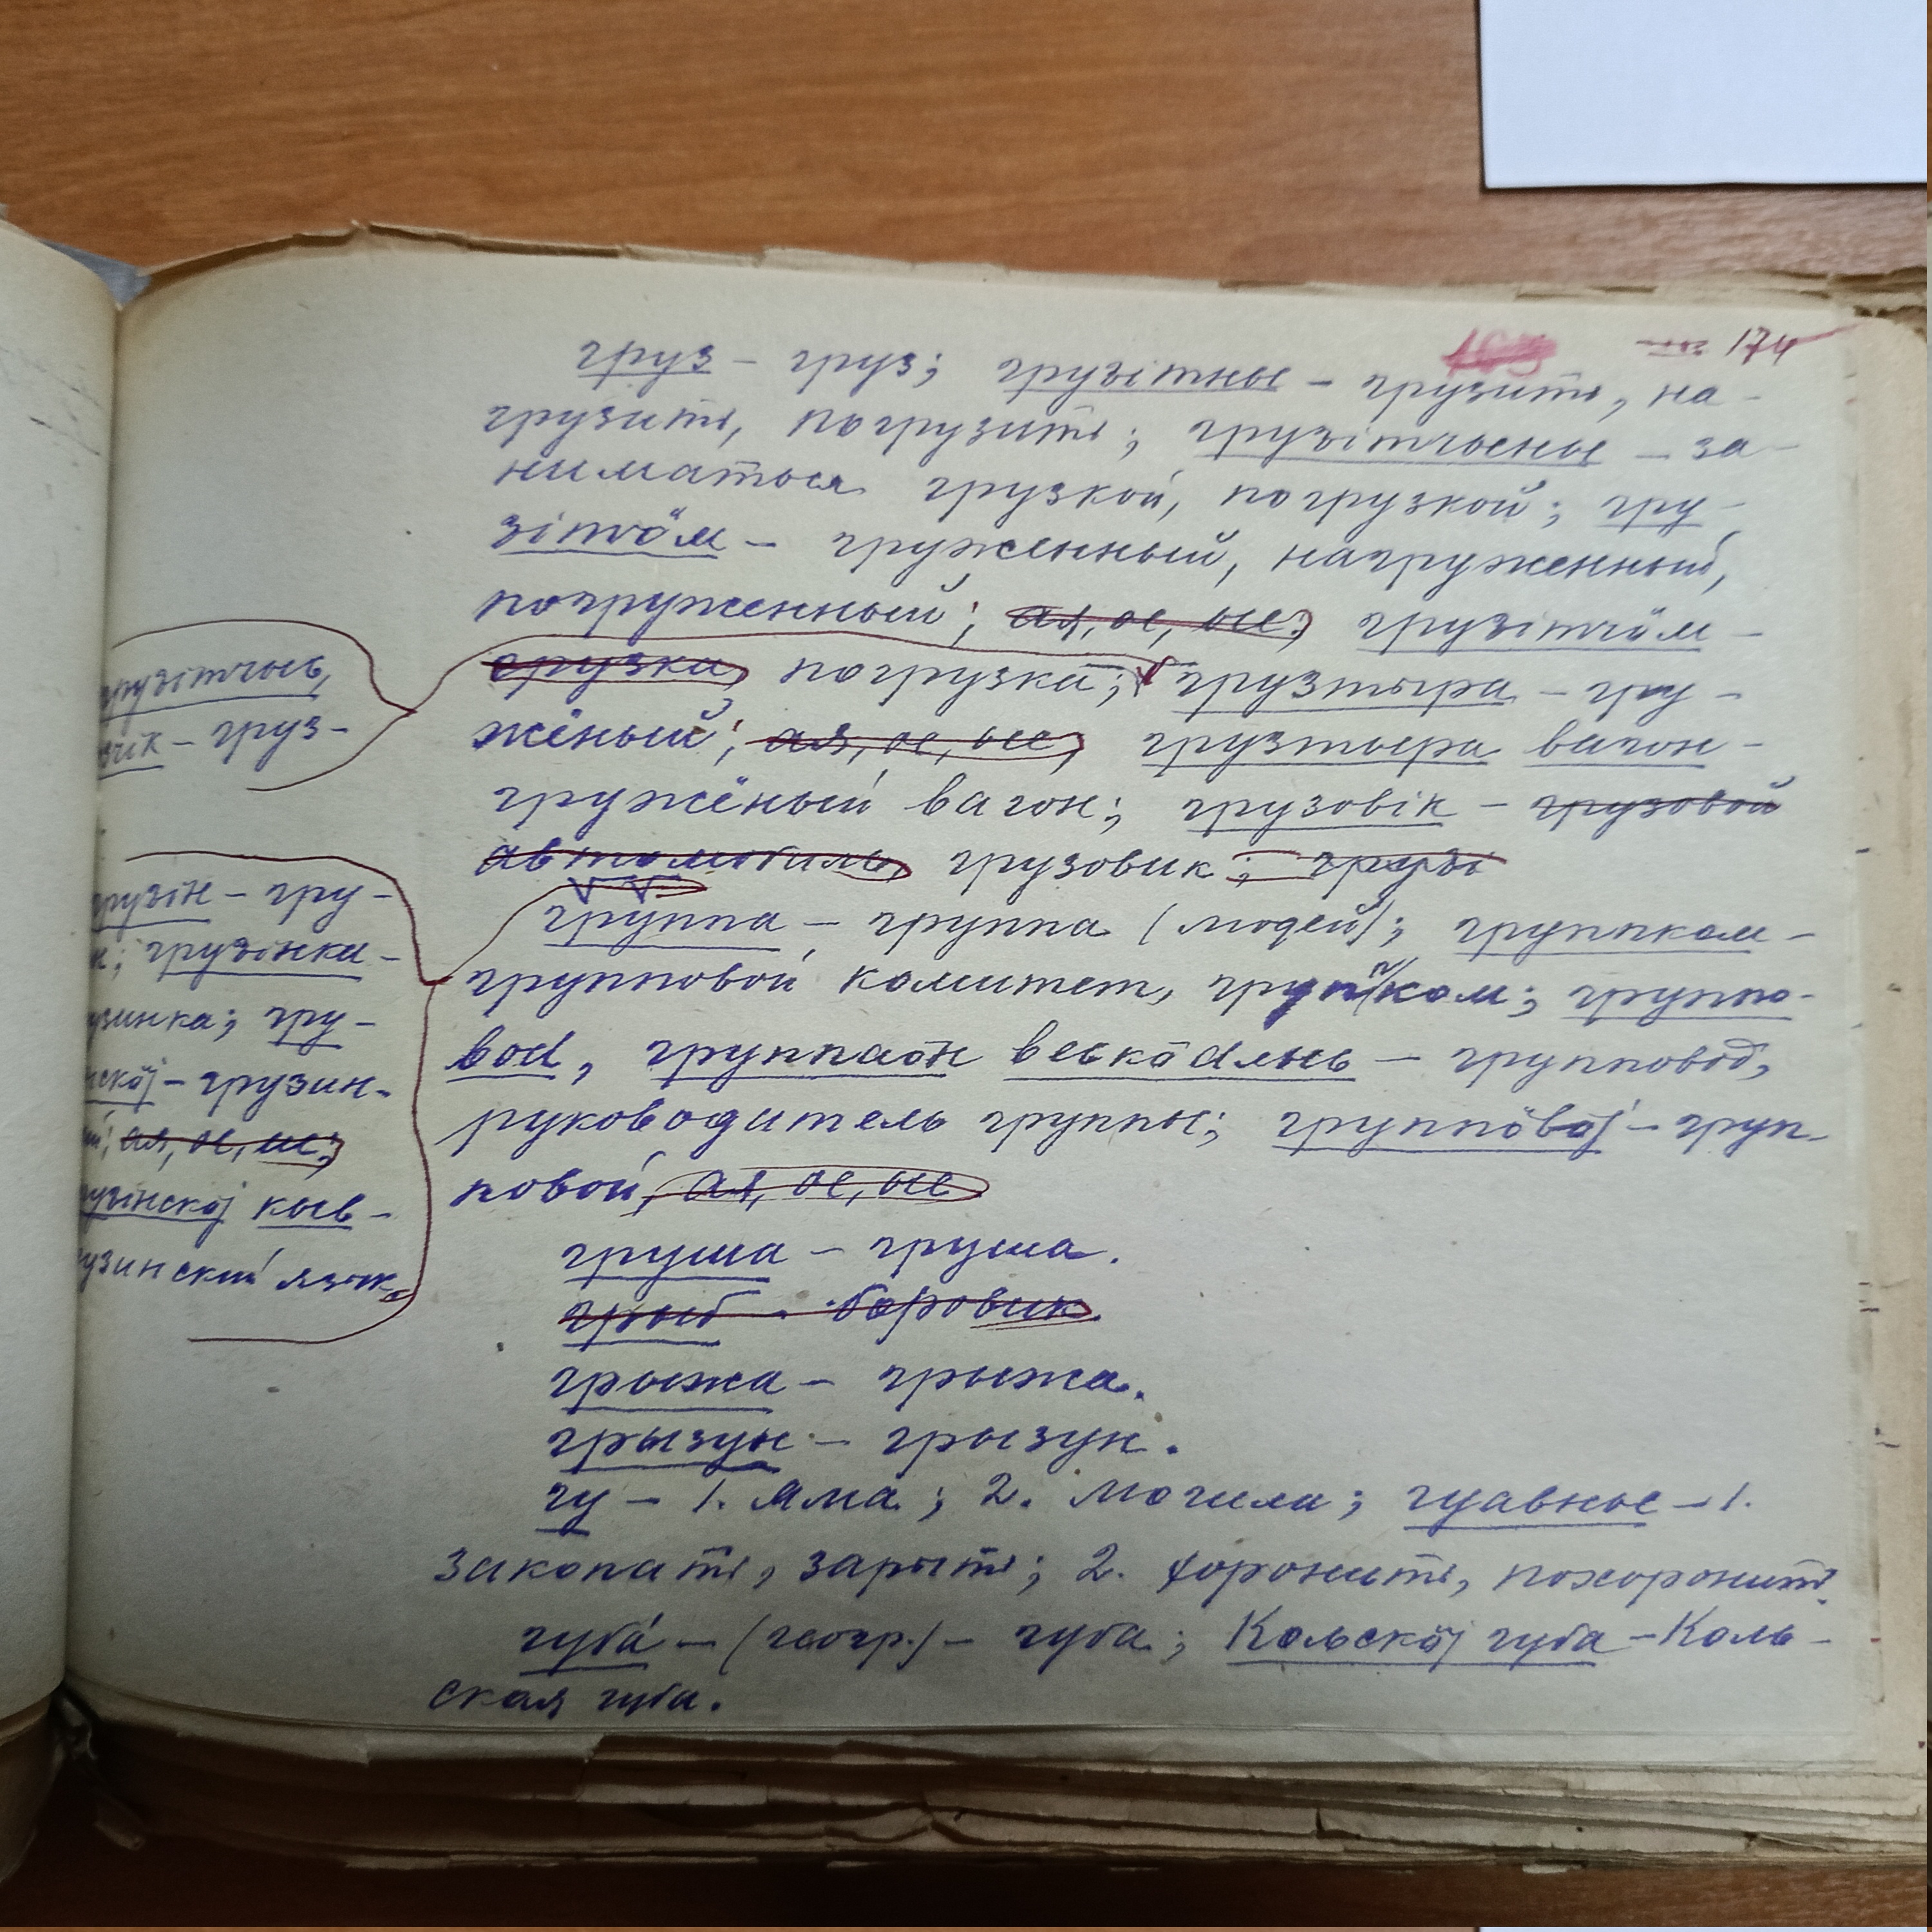 174
груз – груз; грузітны – грузить, на-
грузить, погрузить; грузітчыны – за-
ниматься грузкой, погрузкой; гру-
зітчӧм – груженный, нагруженный,
погруженный; ая, ое, ые; грузітчӧм –
грузка, погрузка; грузтыра – гру-
жёный; ая, ое, ые; грузтыра вагон –
гружёный вагон; грузовік – грузовой
автомобиль, грузовик; грузі
группа – группа (людей); группком –
групповой комитет, группком; группо-
вод, группаӧн веськӧдлысь – групповод,
руководитель группы; группӧвӧј – груп-
повой, ая, ое, ые
груша – груша.
грыб – боровик.
грыжа – грыжа.
грызун – грызун.
гу – 1. яма; 2. могила; гуавны – 1.
закопать, зарыть; 2. хоронить, похоронить.
губа – (геогр.) – губа; Кольскӧј губа – Коль-
ская губа.
грузітчысь,
зчік – груз-
грузін – гру-
н; грузінка –
узинка; гру-
нскӧј – грузин-
ий; ая, ое, ие;
рузінскӧј кыв –
узинский язык.